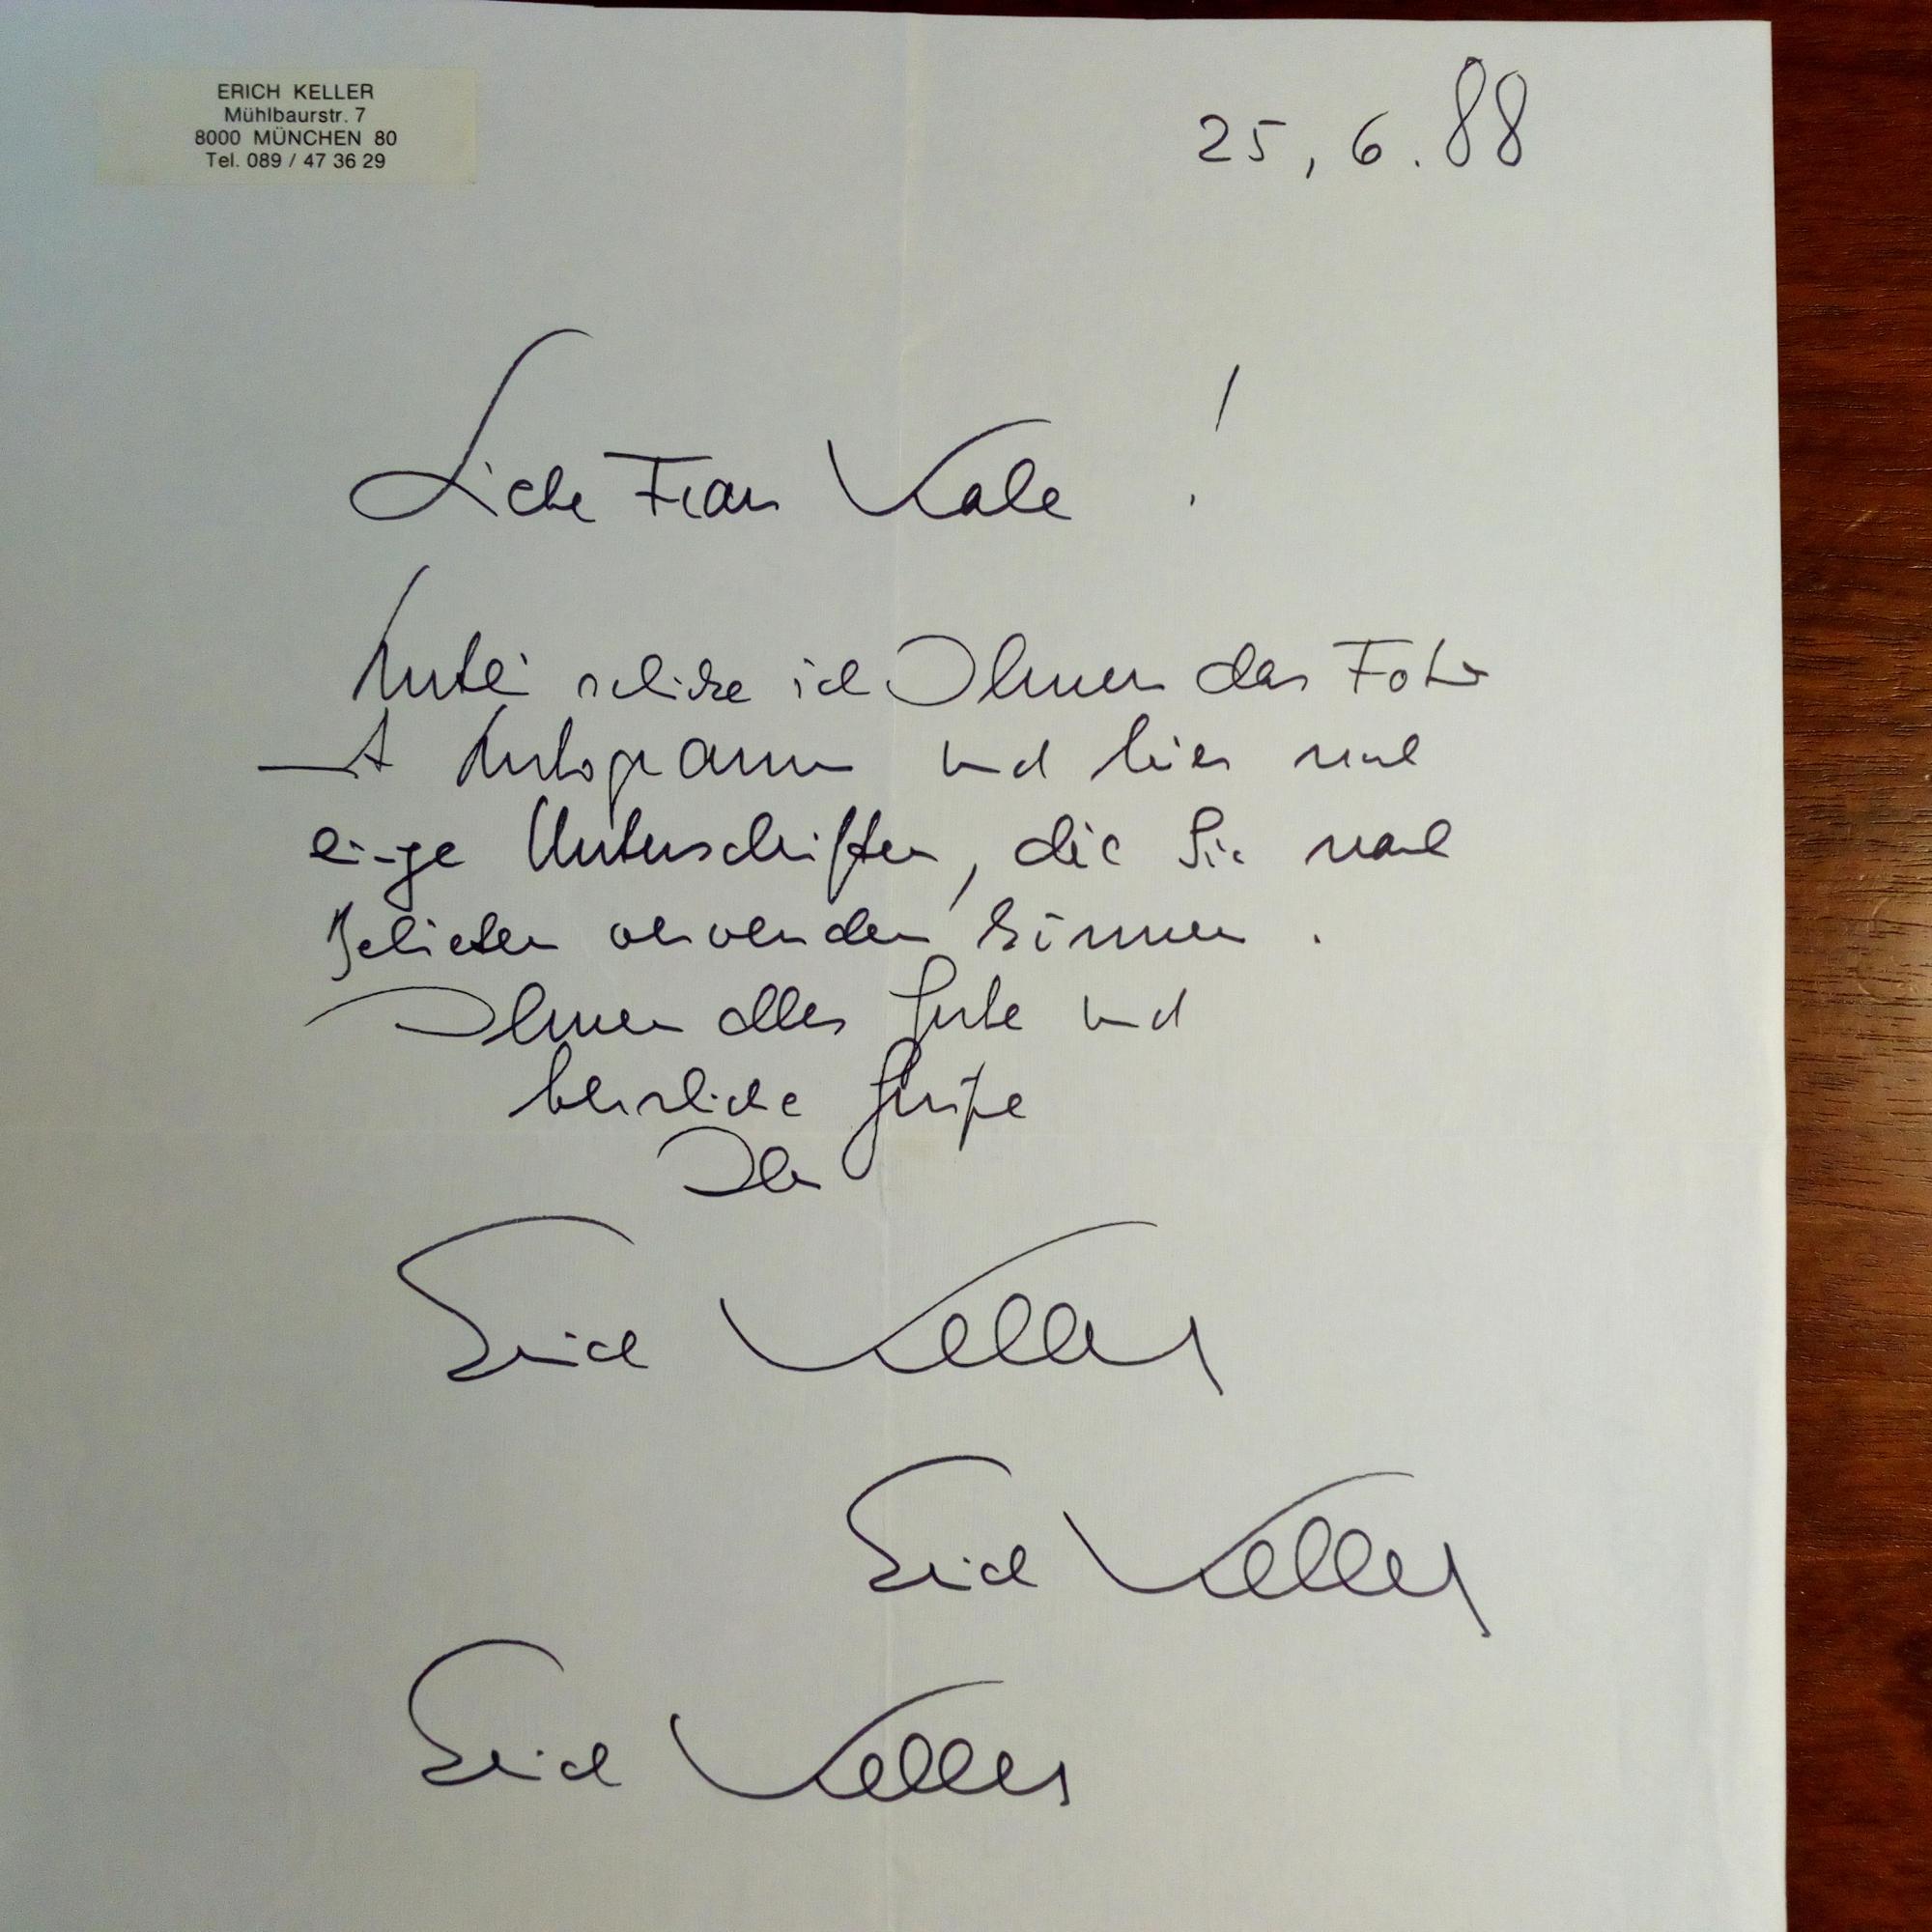 ERICH KELLER
Mühlbaurstr. 7
8000 MÜNCHEN 80
Tel. 089 / 47 36 29
25,6.88
Liebe Frau Kale !
Anbei schicke ich Ihnen das Foto
mit Autogramm und hier noch
einige Unterschriften, die Sie nach
Belieben verwenden können.
Ihnen alles Gute und
herzliche Grüße
Ihr
Erich Keller
Erich Keller
Erich Keller